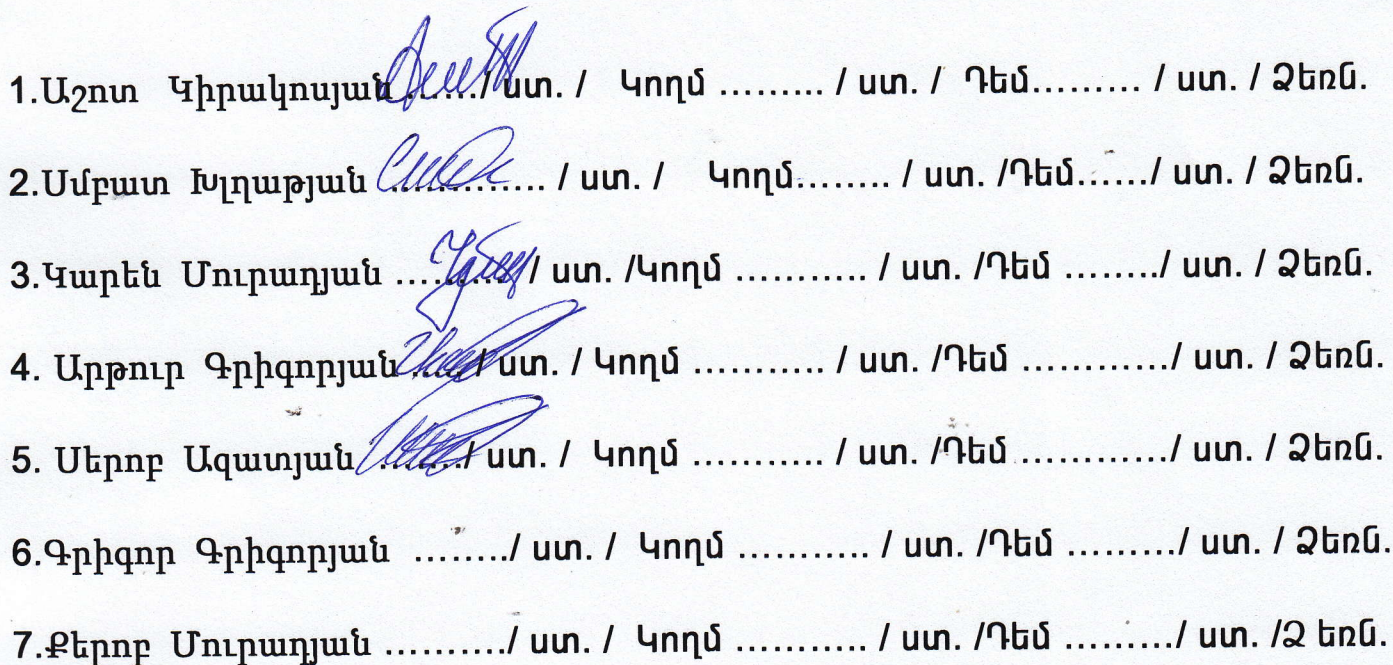 1.Աշոտ Կիրակոսյան ......./ ստ. / Կողմ ......... / ստ. / Դեմ......... / ստ. / Ձեռն.
2.Սմբատ Խլղաթյան ............. / ստ. / Կողմ........ / ստ. /Դեմ....../ ստ. / Ձեռն.
3.Կարեն Մուրադյան ........../ ստ. /Կողմ ........... / ստ. /Դեմ ......../ ստ. / Ձեռն.
4. Արթուր Գրիգորյան ....../ ստ. / Կողմ ........... / ստ. /Դեմ ............/ ստ. / Ձեռն.
5. Սերոբ Ազատյան ......../ ստ. / Կողմ ........... / ստ. /Դեմ ............/ ստ. / Ձեռն.
6.Գրիգոր Գրիգորյան ......../ ստ. / Կողմ ........... / ստ. /Դեմ ........./ ստ. / Ձեռն.
7.Քերոբ Մուրադյան ........../ ստ. / Կողմ ........... / ստ. /Դեմ ........./ ստ. /Ձ եռն.